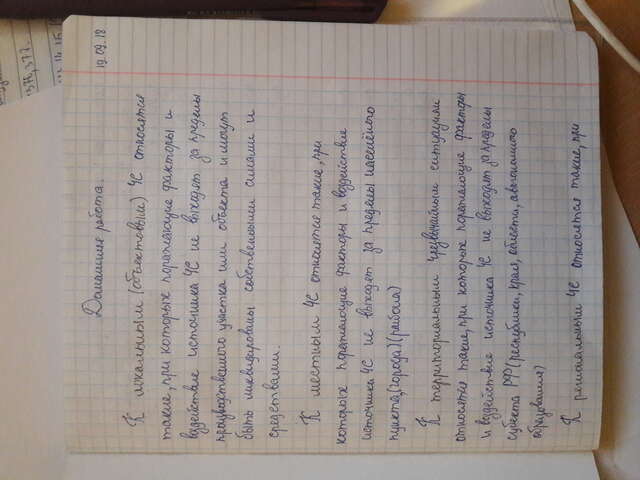 19.09.18
Домашняя работа.
К локальным (объектовым) ЧС относятся
такие, при которых поражающие факторы и
воздействие источника ЧС не выходят за пределы
производственного участка или объекта и могут
быть ликвидированы собственными силами и
средствами.
К местным ЧС относятся такие, при
которых поражающие факторы и воздействие
источника ЧС не выходят за пределы населённого
пункта, (города) (района)
К территориальным чрезвычайным ситуациям
относятся такие, при которых поражающие факторы
и воздействие источника ЧС не выходят за пределы
субъекта РФ (республики, края, области, автономного
образования)
К региональным ЧС относятся такие, при
376,377.